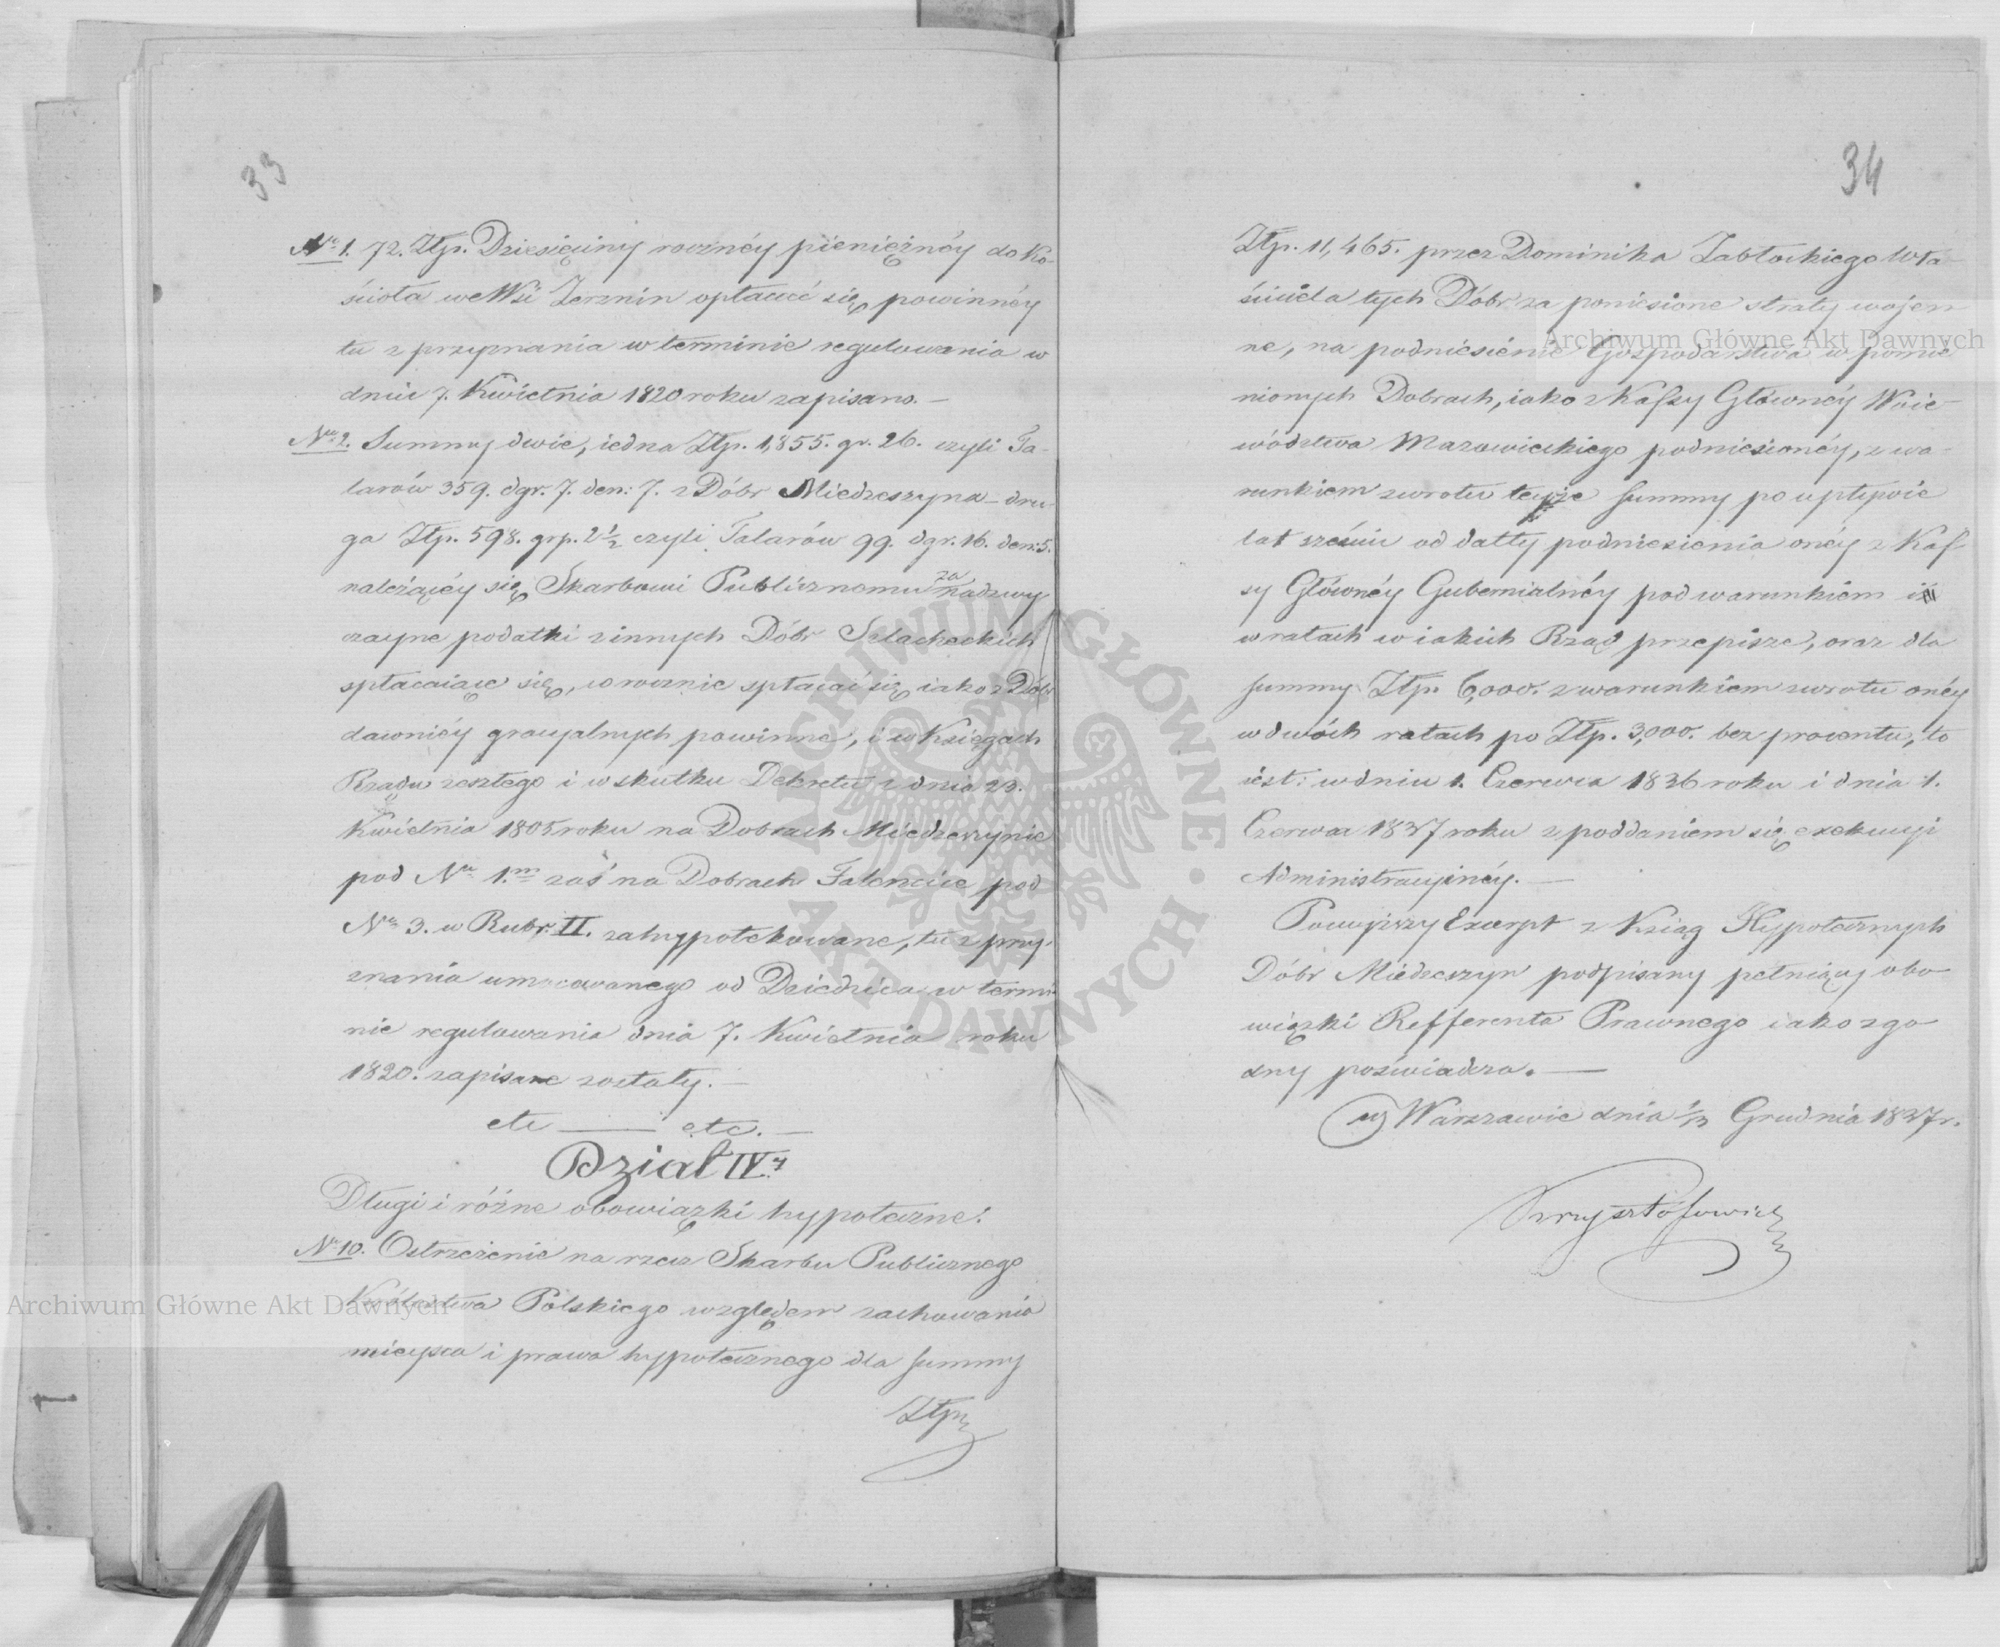 33
No 1. 72. Złp. Dziesięciny roczney pieniężnéy do Ko-
ścioła we Wsi Zerznin opłacać się powinnéy
tu z przyznania w terminie regulowania w
dniu 7. Kwietnia 1820 roku zapisano. —
Nro 2. Summy dwie, iedna Złp. 1,855. gr. 26. czyli Ta-
larów 359. dgr. 7. den: 7. z Dóbr Miedzeszyna — dru-
ga Złp. 598. grp. 2 1/2 czyli Talarów 99. dgr. 16. den: 5.
należącéy się Skarbowi Publicznemu za nadzwy
czayne podatki z innych Dóbr Szlacheckich
spłacaiące się, corocznie spłacać się iako z Dóbr
dawniéy gracyalnych powinne, i w Księgach
Rządu zeszłego i w skutku Dekretu z dnia 23.
Kwietnia 1805 roku na Dobrach Miedzeszynie
pod Nro 1.m zaś na Dobrach Falencice pod
Nro 3. w Rubr. II. zahypotekowane, tu z przy-
znania umocowanego od Dziedzica w termi-
nie regulowania dnia 7. Kwietnia roku
1820. zapisane zostały. —
etc — etc. —
Dział IVy
Długi i różne obowiązki hypoteczne.
Nro 10. Ostrzeżenie na rzecz Skarbu Publicznego
Królestwa Polskiego względem zachowania
mieysca i prawa hypotecznego dla summy
Złp
34
Złp. 11,465. przez Dominika Zabłockiego Wła-
ściciela tych Dóbr za poniesione straty wojen-
ne, na podniesienie Gospodarstwa w pomie
nionych Dobrach, iako z Kassy Głównéy Woie-
wództwa Mazowieckiego podniesionéy, z wa-
runkiem zwrotu teyże summy po upływie
lat sześciu od datty podniesienia onéy z Kas-
sy Głównéy Gubernialnéy pod warunkiem i
w ratach w iakich Rząd przepisze, oraz dla
summy Złp. 6,000. z warunkiem zwrotu onéy
w dwóch ratach po Złp. 3,000. bez procentu, to
iest: w dniu 1. Czerwca 1836 roku i dnia 1.
Czerwca 1837 roku z poddaniem się exekucyi
Administracyinéy. —
Powyższy Excerpt z Ksiąg Hypotecznych
Dóbr Miedzeszyn podpisany pełniący obo-
wiązki Refferenta Prawnego iako zgo
dny poświadcza. —
w Warszawie dnia 1/13 Grudnia 1837 r.
Krzysztofowicz
Archiwum Główne Akt Dawnych
Archiwum Główne Akt Dawnych
ARCHIWUM GŁÓWNE · AKT DAWNYCH ·
1